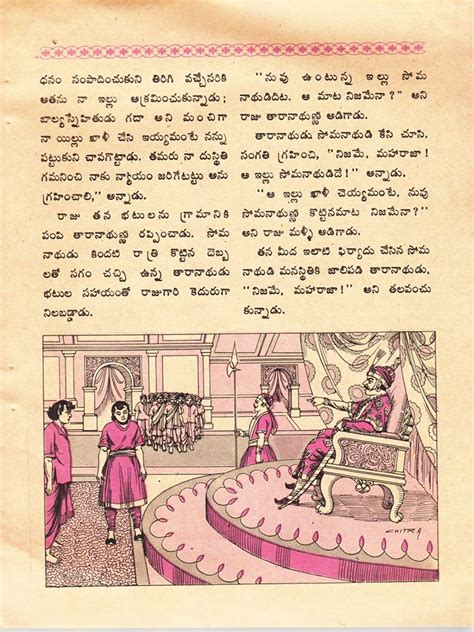 ధనం సంపాదించుకుని తిరిగి వచ్చేసరికి
అతను నా ఇల్లు ఆక్రమించుకున్నాడు;
బాల్యస్నేహితుడు గదా అని మంచిగా
నా యిల్లు ఖాళీ చేసి ఇయ్యమంటే నన్ను
పట్టుకుని చావగొట్టాడు. తమరు నా దుస్థితి
గమనించి నాకు న్యాయం జరిగేటట్టు అను
గ్రహించాలి,” అన్నాడు.
రాజు తన భటులను గ్రామానికి
పంపి తారానాథుణ్ణి రప్పించాడు. సోమ
నాథుడు కిందటి రాత్రి కొట్టిన దెబ్బ
లతో సగం చచ్చి ఉన్న తారానాథుడు
భటుల సహాయంతో రాజుగారి కెదురుగా
నిలబడ్డాడు.
“నువు ఉంటున్న ఇల్లు సోమ
నాథుడిదిట. ఆ మాట నిజమేనా?” అని
రాజు తారానాథుణ్ణి అడిగాడు.
తారానాథుడు సోమనాథుడి కేసి చూసి,
సంగతి గ్రహించి, “నిజమే, మహారాజా!
ఆ ఇల్లు సోమనాథుడిదే!” అన్నాడు.
“ఆ ఇల్లు ఖాళీ చెయ్యమంటే, నువు
సోమనాథుణ్ణి కొట్టినమాట నిజమేనా?”
అని రాజు మళ్ళీ అడిగాడు.
తన మీద ఇలాటి ఫిర్యాదు చేసిన సోమ
నాథుడి మనస్థితికి జాలిపడి తారానాథుడు,
“నిజమే, మహారాజా!” అని తలవంచు
కున్నాడు.
CHITRA